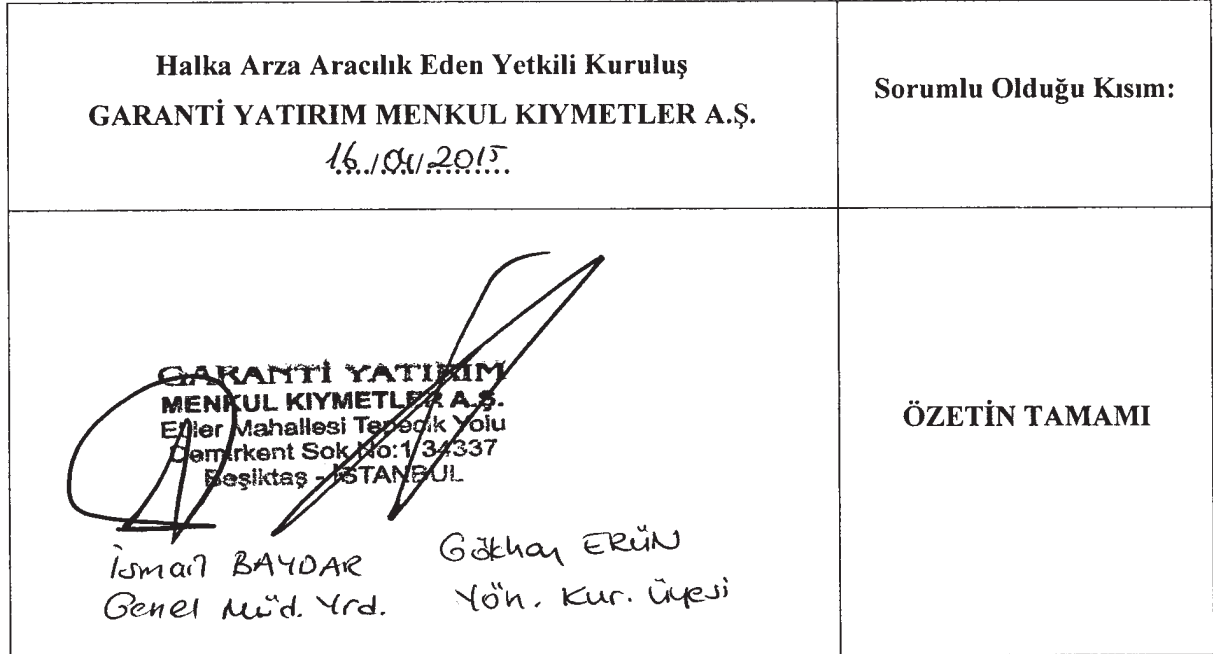 Halka Arza Aracılık Eden Yetkili Kuruluş
GARANTİ YATIRIM MENKUL KIYMETLER A.Ş.
16./04/2015
Sorumlu Olduğu Kısım:
GARANTİ YATIRIM
MENKUL KIYMETLER A.Ş.
Etiler Mahallesi Tepecik Yolu
Demirkent Sok No:1 34337
Beşiktaş - İSTANBUL
İsmail BAYDAR
Genel Müd. Yrd.
Gökhan ERÜN
Yön. Kur. Üyesi
ÖZETİN TAMAMI